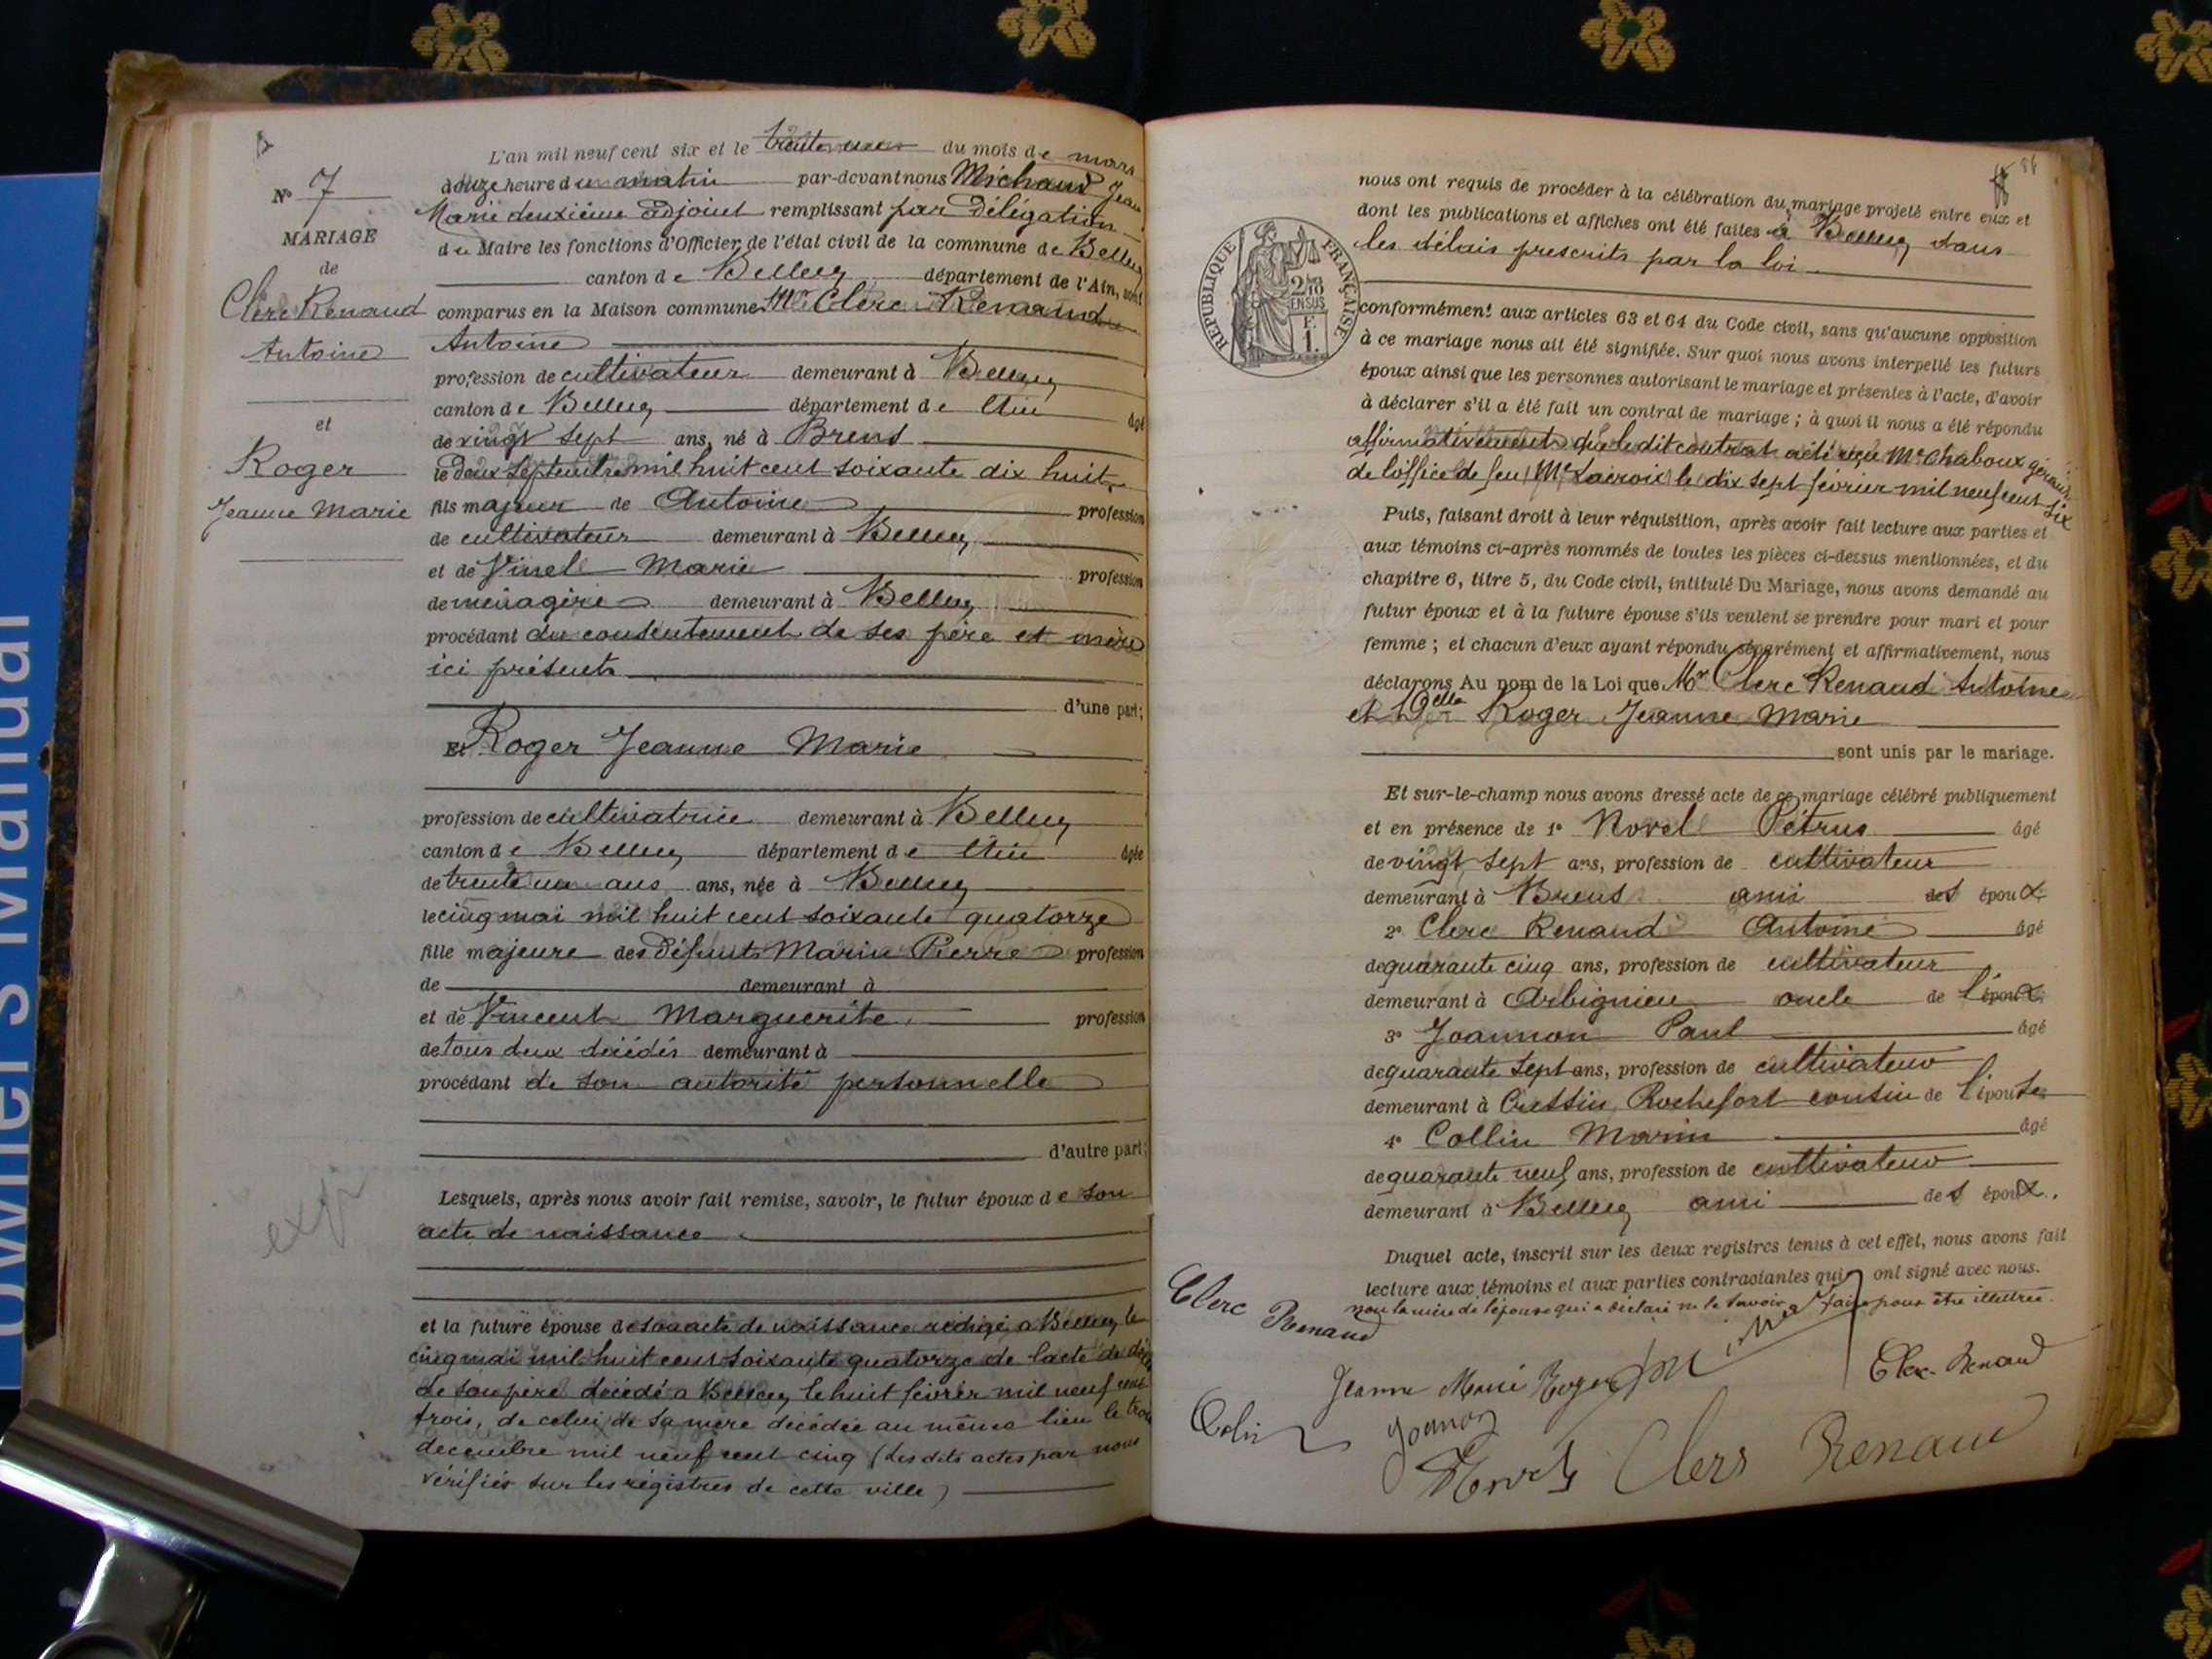 L'an mil neuf cent six et le trente un du mois de mars
à onze heure du matin par-devant nous Michaud Jean
Marie deuxième adjoint remplissant par Délégation
du Maire les fonctions d'Officier de l'état civil de la commune de Belley
canton de Belley département de l'Ain, sont
comparus en la Maison commune Mr Clerc Renaud
Antoine
profession de cultivateur demeurant à Belley
canton de Belley département de l'Ain âgé
de vingt sept ans, né à Brens
le deux septembre mil huit cent soixante dix huit
fils majeur de Antoine profession
de cultivateur demeurant à Belley
et de Vinel Marie profession
de ménagère demeurant à Belley
procédant du consentement de ses père et mère
ici présents
d'une part;
Et Roger Jeanne Marie
profession de cultivatrice demeurant à Belley
canton de Belley département de l'Ain âgée
de trente un ans ans, née à Belley
le cinq mai mil huit cent soixante quatorze
fille majeure des défunts Marin Pierre profession
de demeurant à
et de Vincent Marguerite profession
de tous deux décédés demeurant à
procédant de son autorité personnelle
d'autre part;
Lesquels, après nous avoir fait remise, savoir, le futur époux de son
acte de naissance
et la future épouse de son acte de naissance rédigé a Belley le
cinq mai mil huit cent soixante quatorze de l'acte de décès
de son père décédé a Belley le huit février mil neuf cent
trois, de celui de sa mère décédée au même lieu le trois
decembre mil neuf cent cinq (Les dits actes par nous
vérifiés sur les régistres de cette ville)
N° 7
MARIAGE
de
Clerc Renaud
Antoine
et
Roger
Jeanne Marie
exp
86
nous ont requis de procéder à la célébration du mariage projeté entre eux et
dont les publications et affiches ont été faites à Belley dans
les délais prescrits par la loi
RÉPUBLIQUE FRANÇAISE
2/10
EN SUS
F.
1.
conformément aux articles 63 et 64 du Code civil, sans qu'aucune opposition
à ce mariage nous ait été signifiée. Sur quoi nous avons interpellé les futurs
époux ainsi que les personnes autorisant le mariage et présentes à l'acte, d'avoir
à déclarer s'il a été fait un contrat de mariage; à quoi il nous a été répondu
affirmativement que le dit contrat a été reçu Me Chaboux gérant
de l'office de feu Me Lacroix le dix sept février mil neuf cent six
Puis, faisant droit à leur réquisition, après avoir fait lecture aux parties et
aux témoins ci-après nommés de toutes les pièces ci-dessus mentionnées, et du
chapitre 6, titre 5, du Code civil, intitulé Du Mariage, nous avons demandé au
futur époux et à la future épouse s'ils veulent se prendre pour mari et pour
femme; et chacun d'eux ayant répondu séparément et affirmativement, nous
déclarons Au nom de la Loi que Mr Clerc Renaud Antoine
et Delle Roger Jeanne Marie
sont unis par le mariage.
Et sur-le-champ nous avons dressé acte de ce mariage célébré publiquement
et en présence de 1° Novel Pétrus âgé
de vingt sept ans, profession de cultivateur
demeurant à Brens ami des époux
2° Clerc Renaud Antoine âgé
de quarante cinq ans, profession de cultivateur
demeurant à Arbignieu oncle de l'époux
3° Joannon Paul âgé
de quarante sept ans, profession de cultivateur
demeurant à Cressin Rochefort cousin de l'épouse
4° Collin Marin âgé
de quarante neuf ans, profession de cultivateur
demeurant à Belley ami des époux.
Duquel acte, inscrit sur les deux registres tenus à cet effet, nous avons fait
lecture aux témoins et aux parties contractantes qui ont signé avec nous.
non la mère de l'épouse qui a déclaré ne le savoir faire pour être illettrée
Clerc Renaud
Jeanne Marie Roger
Clerc Renaud
Colin
Joanon
Novel
Clerc Renaud
Owner's Manual